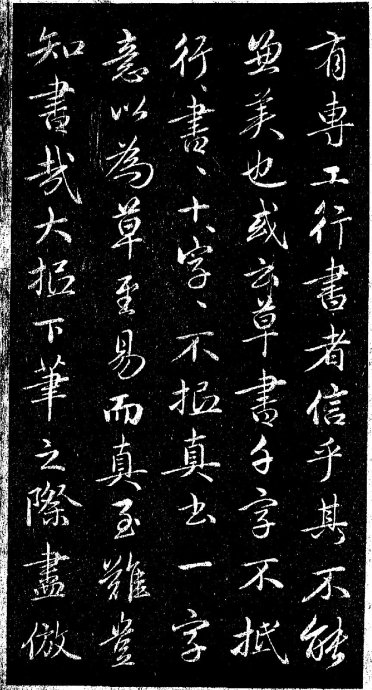 有專工行書者信乎其不能
兼美也或云草書千字不抵
行書〻十字〻不抵真書一字
意以為草至易而真至難豈
知書哉大抵下筆之際盡倣